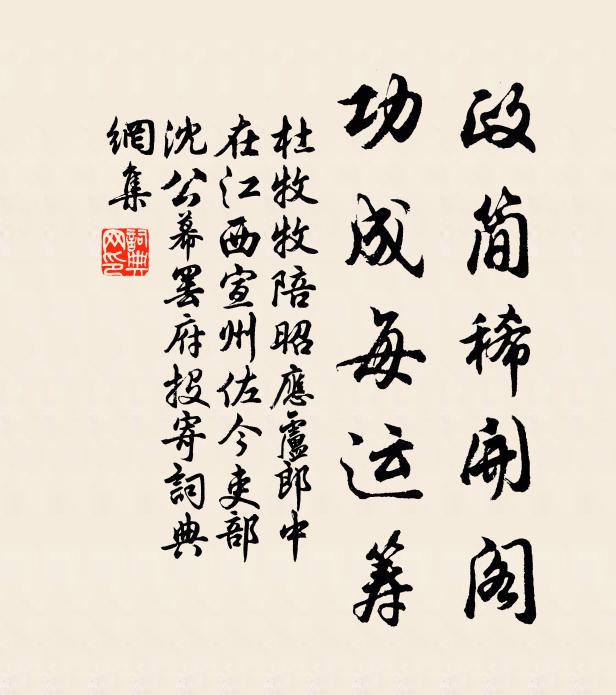 政简稀开阁
功成每运筹
杜牧牧陪昭應盧郎中
在江西宣州佐今吏部
沈公幕罢府投寄詞典
網集
詞典网印